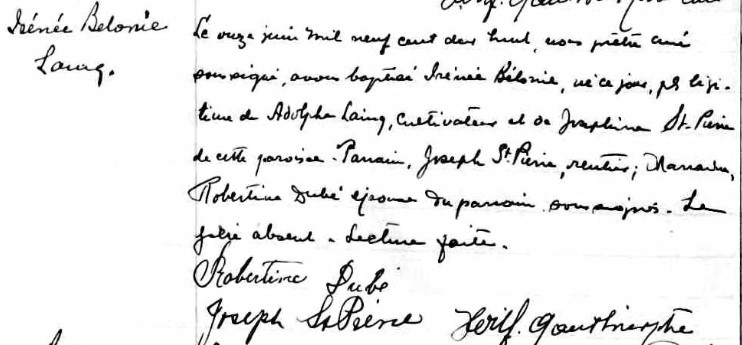 Irénée Bélonie
Laing.
Le onze juin mil neuf cent dix huit, nous prêtre curé
soussigné, avons baptisé Irénée Bélonie, né ce jour, fils légi-
time de Adolphe Laing, cultivateur et de Joséphine St-Pierre
de cette paroisse. Parrain, Joseph St Pierre, rentier; Marraine,
Robertine Dubé épouse du parrain soussignés. Le
père absent. Lecture faite.
Robertine Dubé
Joseph St Pierre